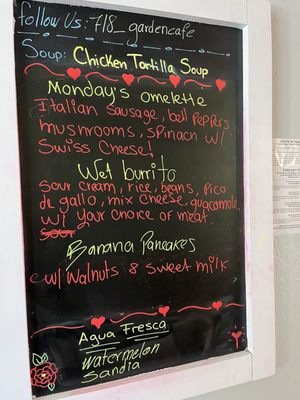 follow Us: 718_gardencafe
Soup: Chicken Tortilla Soup
Monday's omelette
Italian Sausage, bell peppers,
mushrooms, spinach w/
Swiss Cheese!
Wet burrito
Sour cream, rice, beans, pico
de gallo, mix cheese, guacamole,
w/ your choice of meat
Sour
Banana Pancakes
w/ Walnuts & Sweet milk
Agua Fresca
Watermelon
Sandia